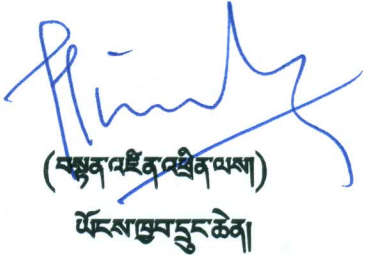 (བསྟན་འཛིན་འཕྲིན་ལས།)
ཡོངས་ཁྱབ་དྲུང་ཆེན།